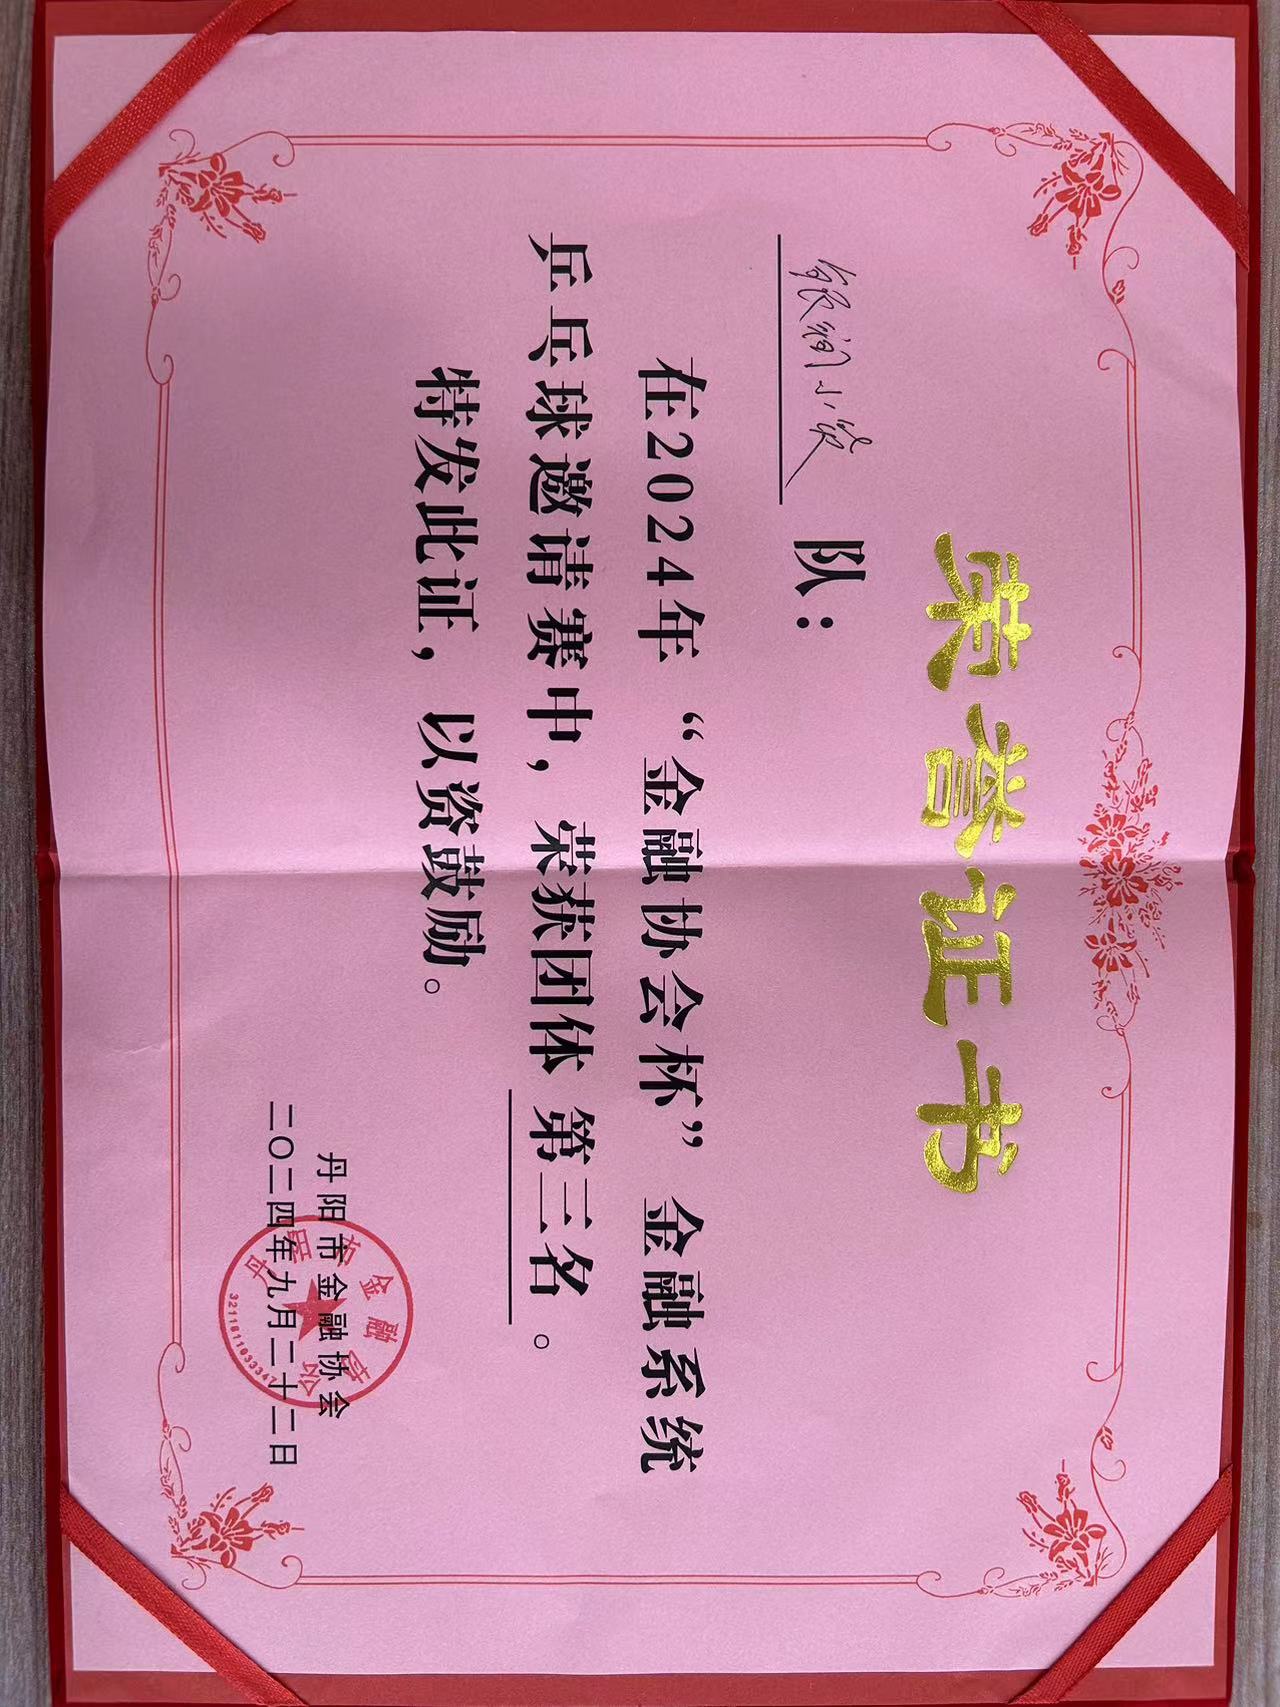 荣誉证书
银润小贷 队：
在2024年“金融协会杯”金融系统
乒乓球邀请赛中，荣获团体 第三名。
特发此证，以资鼓励。
丹阳市金融协会
二〇二四年九月二十二日
丹阳市金融协会